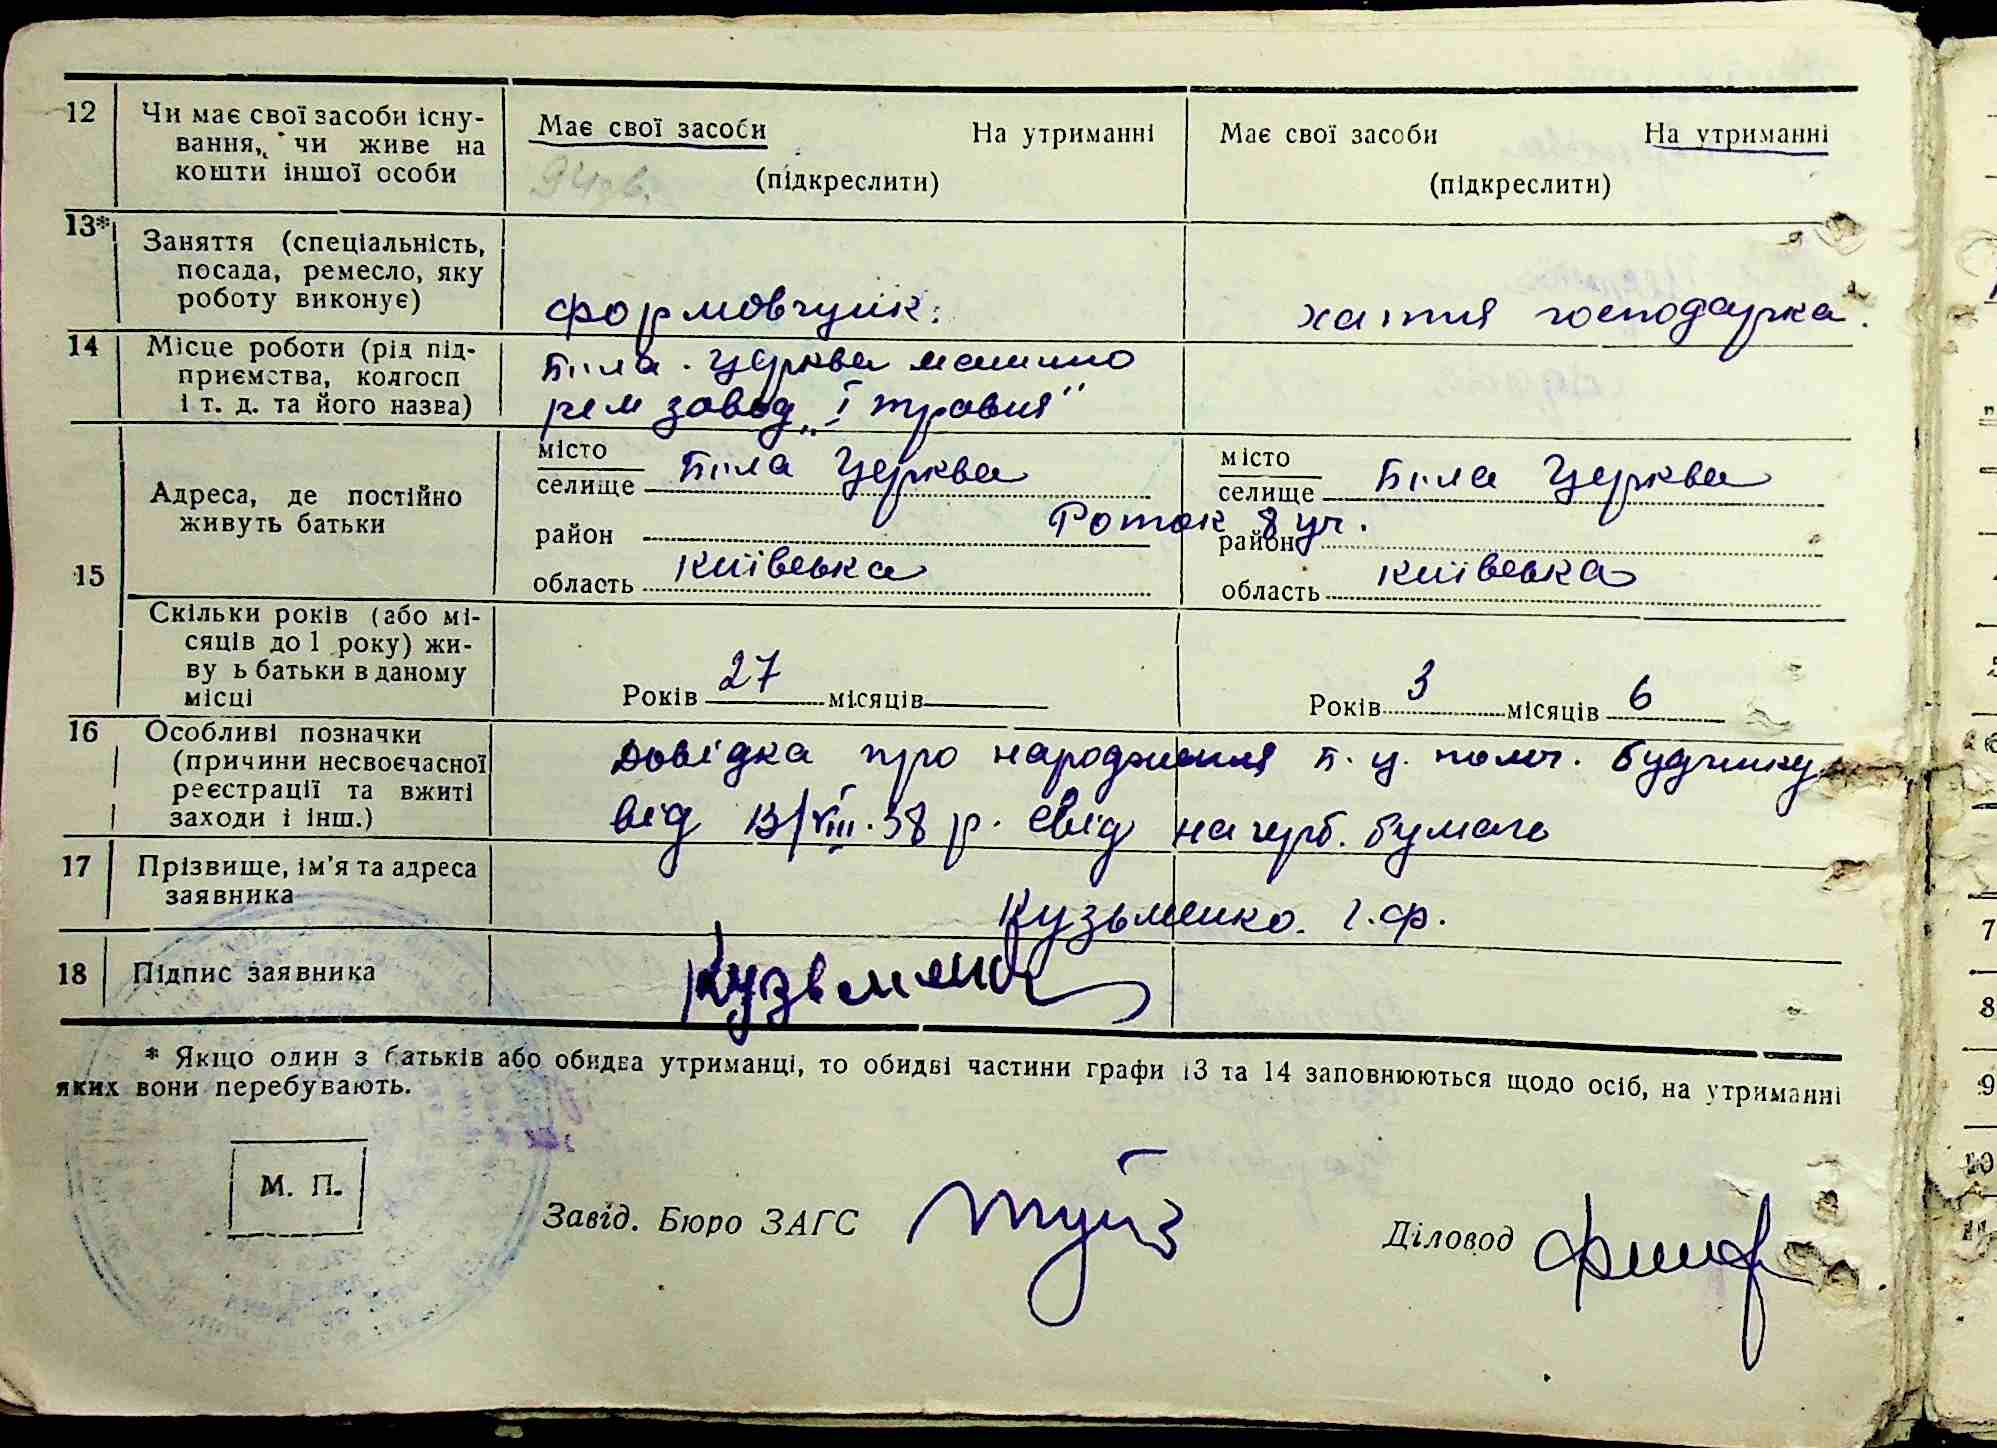 12 Чи має свої засоби існу-
вання, чи живе на
кошти іншої особи
Має свої засоби На утриманні
(підкреслити)
Має свої засоби На утриманні
(підкреслити)
13* Заняття (спеціальність,
посада, ремесло, яку
роботу виконує)
формовчик. хатня господарка.
14 Місце роботи (рід під-
приємства, колгосп
і т. д. та його назва)
Біла. Церква машино
рем завод „І травня"
15 Адреса, де постійно
живуть батьки
місто
селище Біла Церква
район
область київська
Роток 8 уч.
місто
селище Біла Церква
район
область київська
Скільки років (або мі-
сяців до 1 року) жи-
ву ь батьки в даному
місці
Років 27 місяців
Років 3 місяців 6
16 Особливі позначки
(причини несвоєчасної
реєстрації та вжиті
заходи і інш.)
Довідка про народження Б. Ц. полог. будинку
від 13/VIII.38 р. свід на герб. бумаго
17 Прізвище, ім'я та адреса
заявника
Кузьменко. Г. Ф.
18 Підпис заявника
Кузьменко
* Якщо один з батьків або обидва утриманці, то обидві частини графи 13 та 14 заповнюються щодо осіб, на утриманні
яких вони перебувають.
М. П.
Завід. Бюро ЗАГС
Діловод